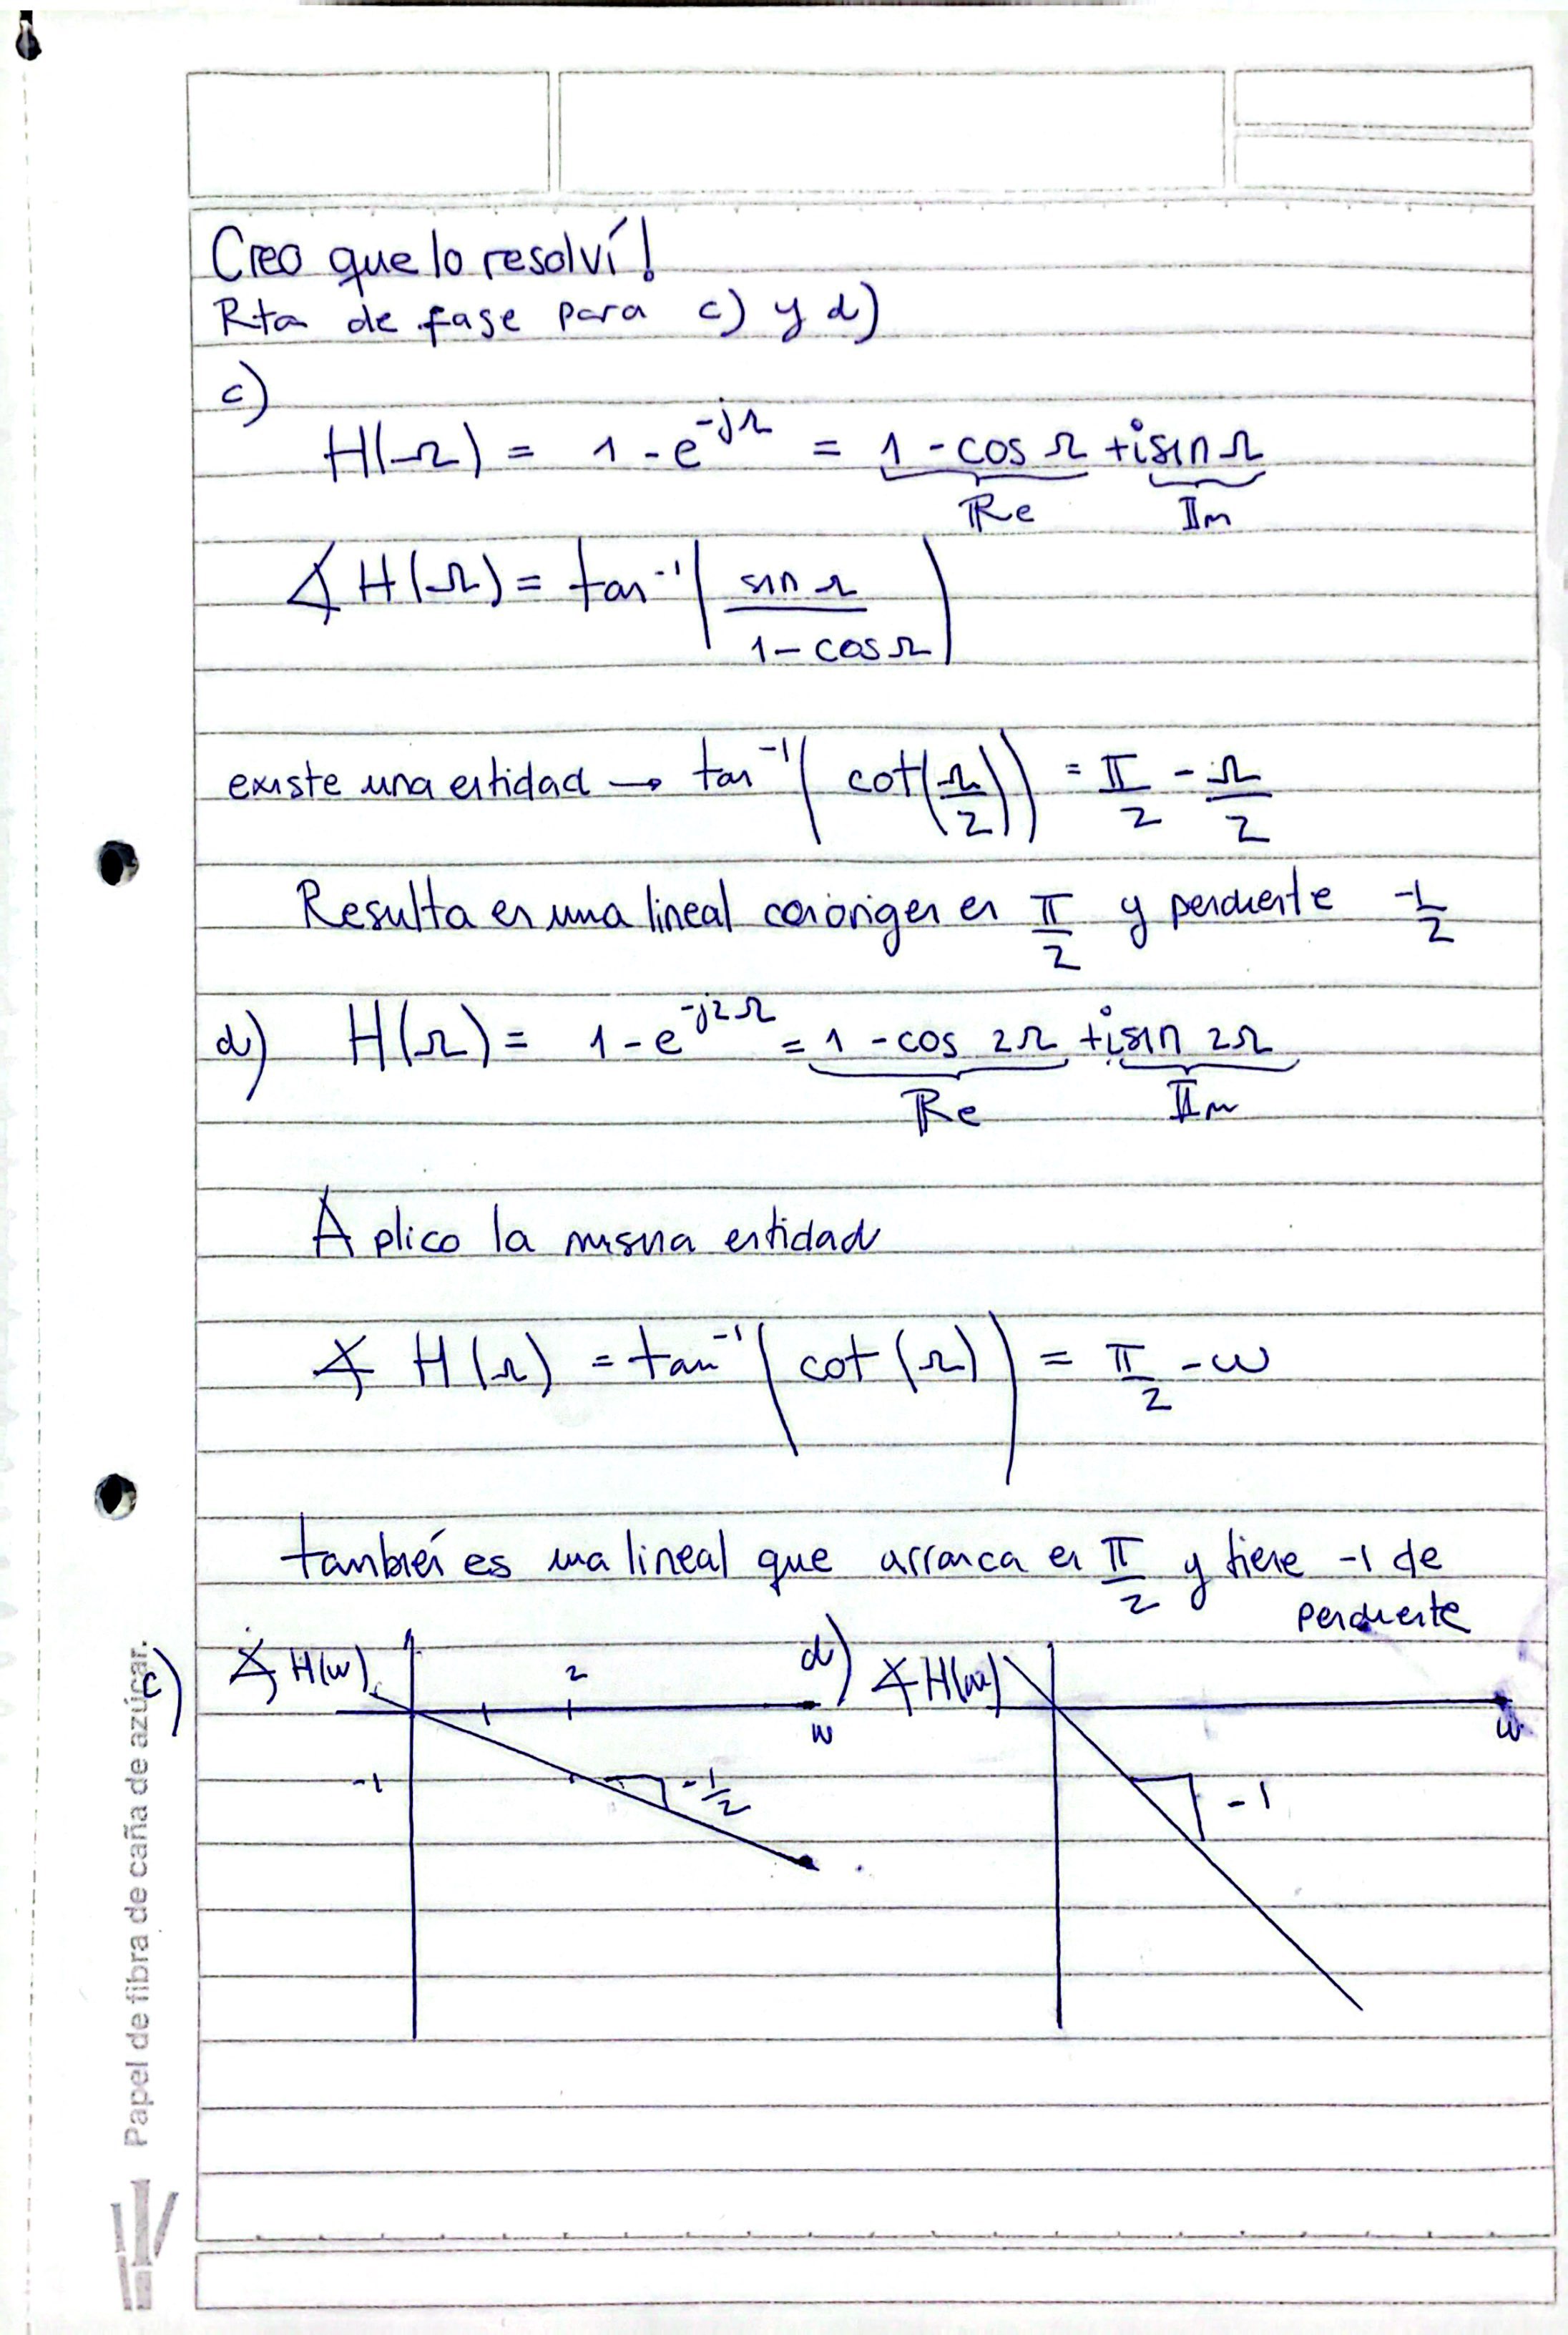 Creo que lo resolví!
Rta de fase para c) y d)
c)
H(Ω) = 1 - e^{-jΩ} = 1 - cos Ω + i sin Ω
Re Im
∡ H(Ω) = tan⁻¹( sin Ω / 1 - cos Ω )
existe una entidad → tan⁻¹( cot(Ω/2)) = π/2 - Ω/2
Resulta en una lineal con origen en π/2 y pendiente -1/2
d) H(Ω) = 1 - e^{-j2Ω} = 1 - cos 2Ω + i sin 2Ω
Re Im
Aplico la misma entidad
∡ H(Ω) = tan⁻¹( cot(Ω) ) = π/2 - ω
también es una lineal que arranca en π/2 y tiene -1 de
pendiente
c) ∡ H(ω) 2 ω -1 -1/2
d) ∡ H(ω) ω -1
Papel de fibra de caña de azúcar.